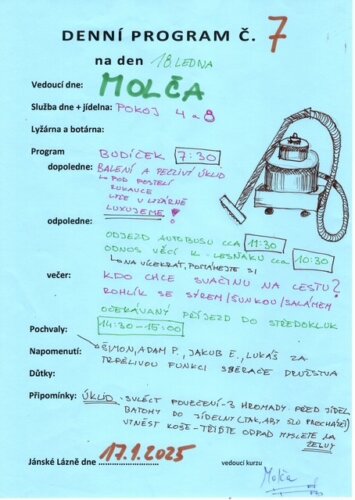 DENNÍ PROGRAM Č. 7
na den 18. LEDNA
Vedoucí dne: MOLČA
Služba dne + jídelna: POKOJ 4 a 8
Lyžárna a botárna:
Program BUDÍČEK 7:30
dopoledne: BALENÍ A PEČLIVÝ ÚKLID
↳ POD POSTELÍ
RUKAVICE
LYŽE V LYŽÁRNĚ
LUXUJEME!
odpoledne:
ODJEZD AUTOBUSU CCA 11:30
ODNOS VĚCÍ K LESŇÁKU CCA 10:30
↳ NA VÍCEKRÁT, POMÁHEJTE SI
večer: KDO CHCE SVAČINU NA CESTU?
ROHLÍK SE SÝREM/ŠUNKOU/SALÁMEM
OČEKÁVANÝ PŘÍJEZD DO STŘEDOKLUK
Pochvaly: 14:30 - 15:00
Napomenutí: ŠIMON, ADAM P., JAKUB E., LUKÁŠ ZA
TRPĚLIVOU FUNKCI SBĚRAČE DRUŽSTVA
Důtky:
Připomínky: ÚKLID - SVLÉCT POVLEČENÍ - 3 HROMADY PŘED JÍDEL.
BATOHY DO JÍDELNY (TAK, ABY ŠLO PROCHÁZET)
VYNÉST KOŠE - TŘIĎTE ODPAD MYSLETE NA
ŽELVY
Jánské Lázně dne 17.1.2025 vedoucí kurzu
Molča